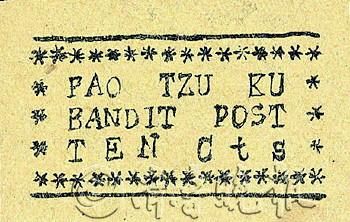 PAO TZU KU
BANDIT POST
TEN Cts